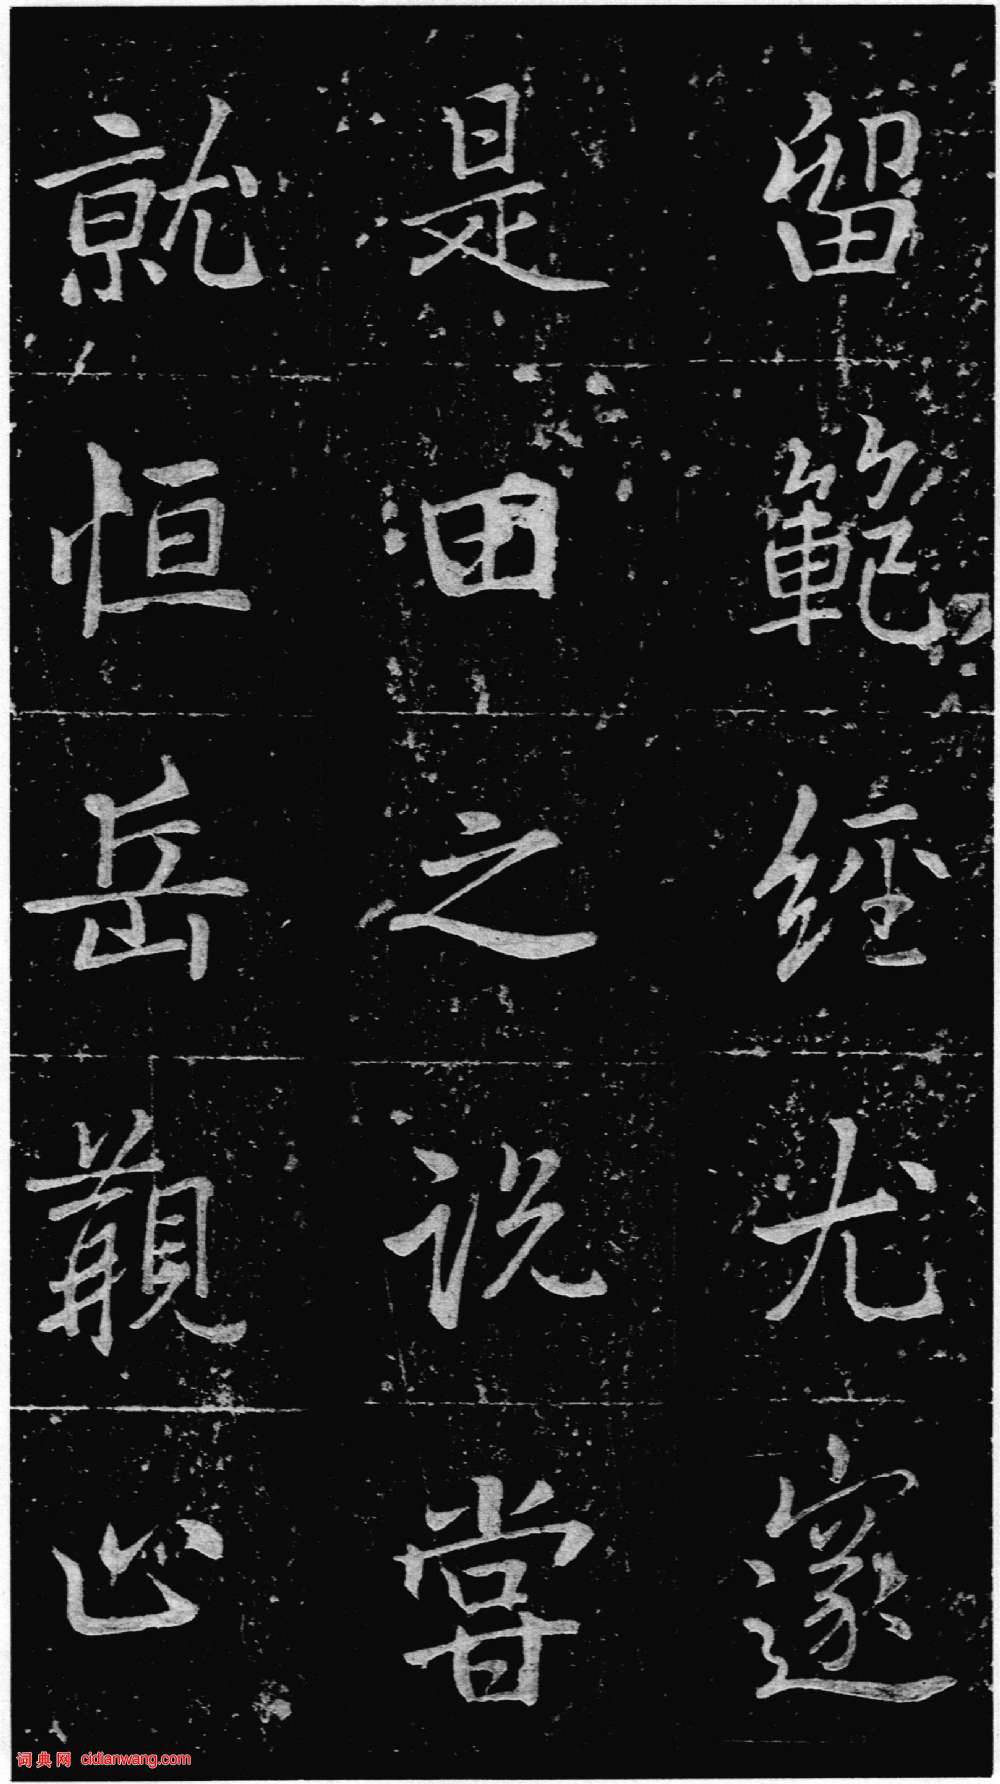 留範經尤邃
是田之説甞
就恒岳覯止
词典网 cidianwang.com